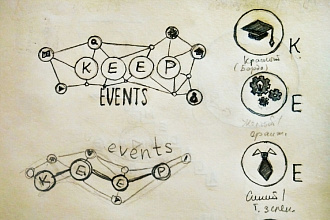 KEEP
EVENTS
events
KEEP
K
Красный
(Бордо)
E
оранж.
E
Синий/
т. зелен.